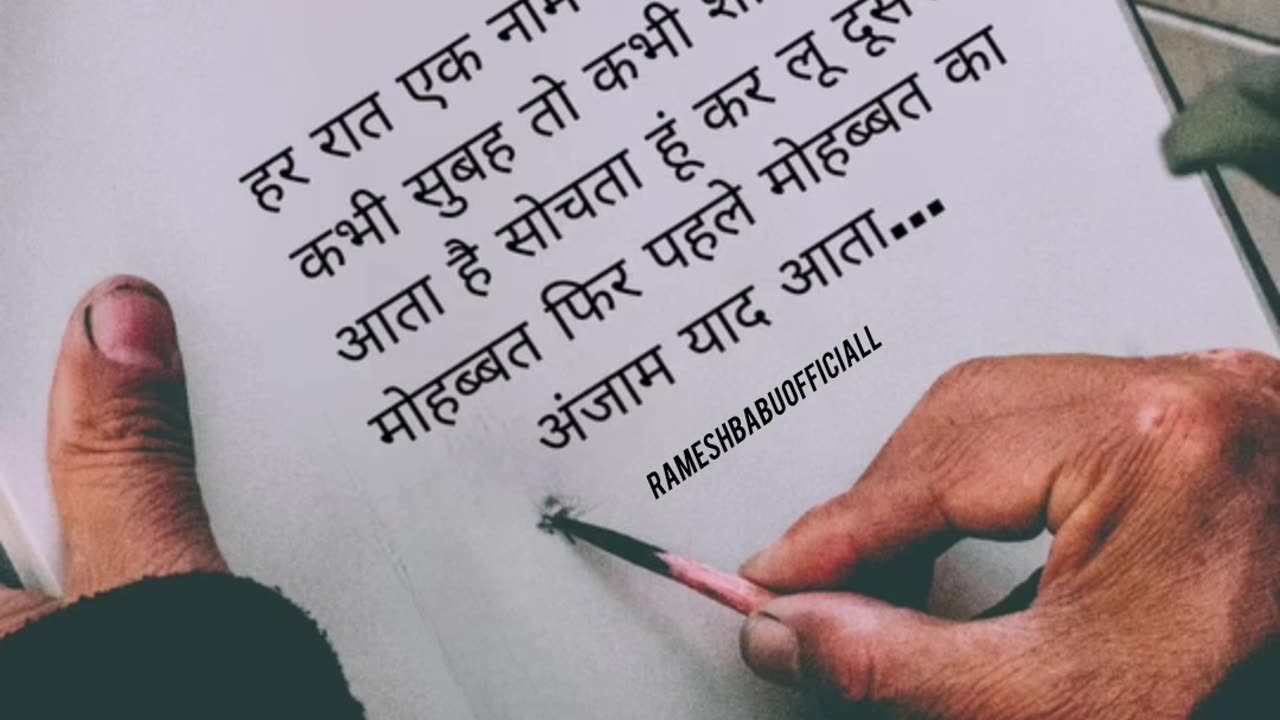 हर रात एक नाम
कभी सुबह तो कभी
आता है सोचता हूं कर लू
मोहब्बत फिर पहले मोहब्बत का
अंजाम याद आता...
RAMESHBABUOFFICIALL